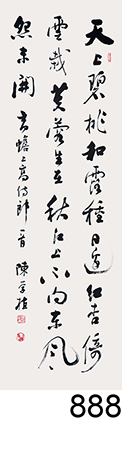 天上碧桃和露種日邊紅杏倚
雲栽芙蓉生在秋江上不向東風
怨未開 高蟾上高侍郎一首 陳
888